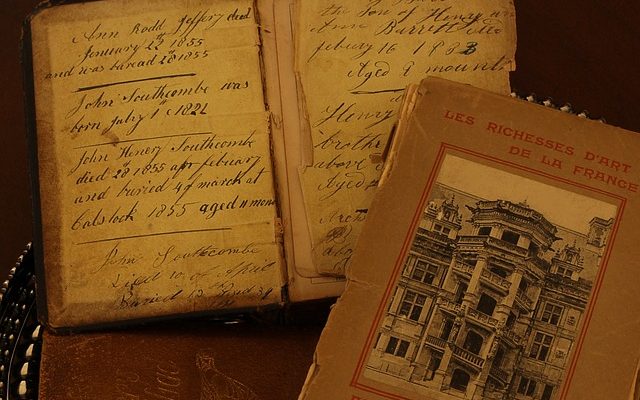 Ann Rodd Jeffery died
January 22th 1855
and was buread 28 1855
John Southcombe was
born July 1st 1822
John Henery Southcombe
died 28 1855 febuary
and buried 4 of march at
1855 aged 11 mon
John Southcombe
Died 10 of April
Buried 13
the Son of Henery an
Ann Burrell
febury 16 1883
Aged 2 mounth
Henry
brothe
above
Aged
LES RICHESSES D'ART
DE LA FRANCE